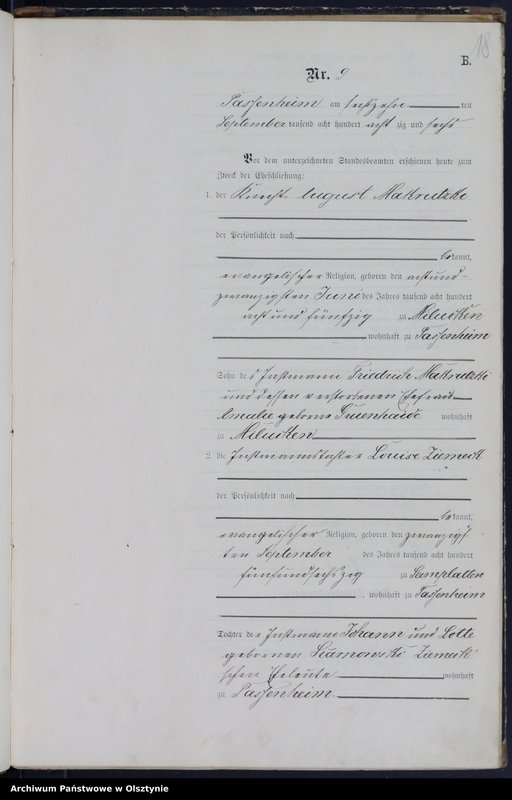 18
B.
Nr. 9
Passenheim am sechszehn ten
September tausend acht hundert acht zig und sechs
Vor dem unterzeichneten Standesbeamten erschienen heute zum
Zweck der Eheschließung:
1. der Knecht August Makrutzki
der Persönlichkeit nach
be kannt,
evangelischer Religion, geboren den achtund-
zwanzigsten Juni des Jahres tausend acht hundert
acht und fünfzig zu Milucken
wohnhaft zu Passenheim
Sohn des Instmann Friedrich Makrutzki
und dessen verstorbenen Ehefrau
Amalie geborne wohnhaft
zu Milucken
2. die Instmannstochter Louise Ziemeck
der Persönlichkeit nach
be kannt,
evangelischer Religion, geboren den zwanzigs-
ten September des Jahres tausend acht hundert
fünfundsechszig zu Samplatten
, wohnhaft zu Passenheim
Tochter der Instmann Johann und Lotte
gebornen Ziemeck'
schen Eheleute wohnhaft
zu Passenheim.
Archiwum Państwowe w Olsztynie